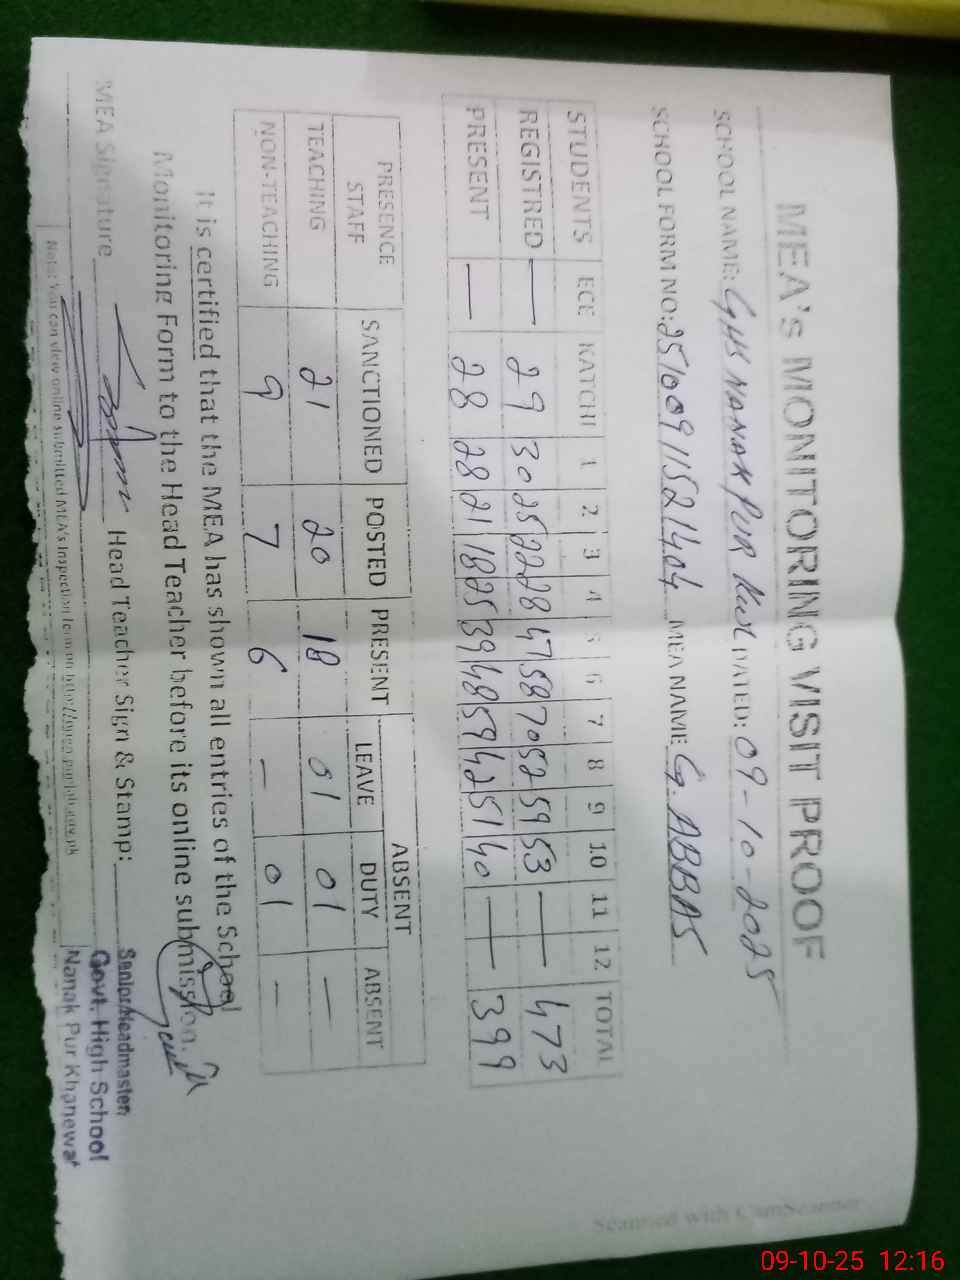 MEA's MONITORING VISIT PROOF
SCHOOL NAME: GHS NANAK PUR KWL DATED: 09-10-2025
SCHOOL FORM NO: 25100911521404 MEA NAME G. ABBAS
STUDENTS ECE KATCHI 1 2 3 4 5 6 7 8 9 10 11 12 TOTAL
REGISTRED — 29 30 25 22 28 47 58 70 52 59 53 — 473
PRESENT — 28 28 21 18 25 39 48 59 42 51 40 — 399
PRESENCE STAFF SANCTIONED POSTED PRESENT ABSENT
LEAVE DUTY ABSENT
TEACHING 21 20 18 01 01 —
NON-TEACHING 9 7 6 — 01 —
It is certified that the MEA has shown all entries of the School
Monitoring Form to the Head Teacher before its online submission.
MEA Signature Head Teacher Sign & Stamp:
Senior Headmaster
Govt. High School
Nanak Pur Khanewal
Note: You can view online submitted MEA's Inspection form on
Scanned with CamScanner
09-10-25 12:16